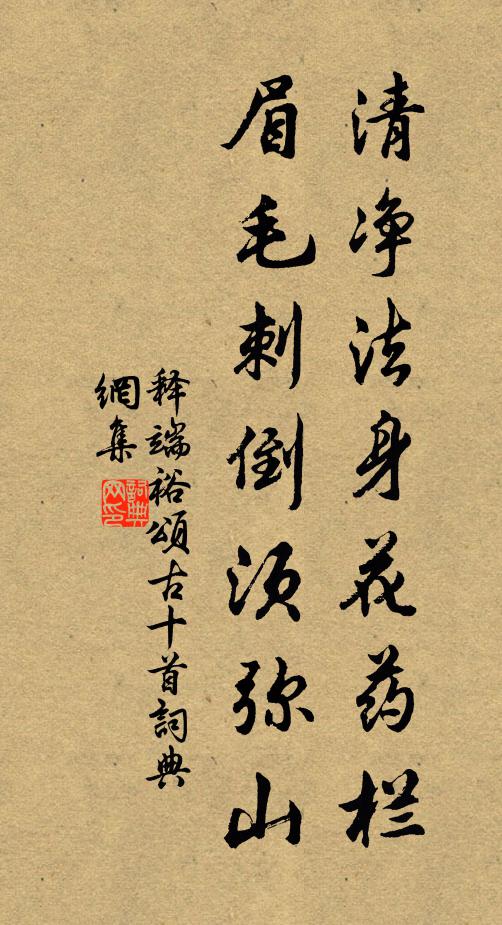 清净法身花药栏
眉毛刺倒须弥山
释端裕頌古十首詞典
網集
詞典
网印